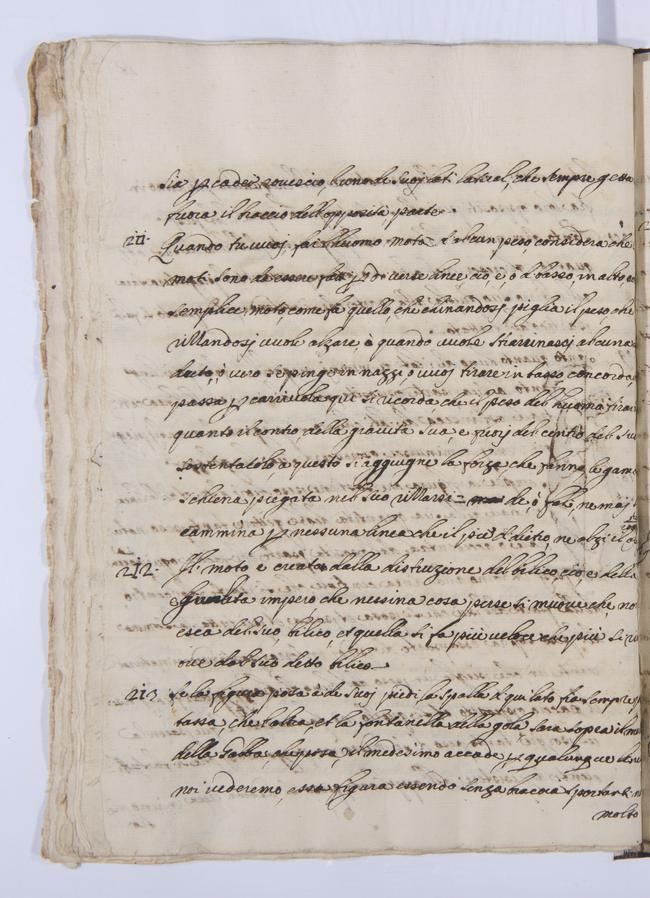 sia per cader rovescio, o uno de suoj lati laterali, che sempre getta
fuora il braccio dell'opposita parte.
211. Quando tu vuoj far l'huomo moto d'alcun peso, considera che
moti sono da essere fatti per diverse linee, cioè, o d basso, in alto co
semplice moto, come fa quello, che chinandosj piglia il peso che
rillandosj vuole alzare, o quando vuole strassinarsj alcuna
dieto, o vero sepinge innazzi, o vuoj tirare in basso con corda
passa per carrucola qui si ricorda che il peso dell'huomo tira
quanto il centro della gravità sua, e fuorj del centro del suo
sostentacolo, a questo si aggiugne la forza che fanno le gam
schiena piegata nel suo rillarsi de, o sale, ne maj
cammina per nessuna linea che il piè d dietro, ne alzi il c
212. Il moto è creato dalla distruzione del bilico, cioè della
impero che nessina cosa perse si muove che no
esca del suo bilico, et quella si fa più veloce che più si ri
ove dal suo detto bilico.
213 Se la figura posa a de suoj piedi la spalla d quel lato fia sempre
bassa, che l'altra, et la fontanella della gola sara sopra il me
della gamba che posa, il medesimo accade per qualunque linea
noi vederemo essa figura essendo senza braccia sportanti
molto